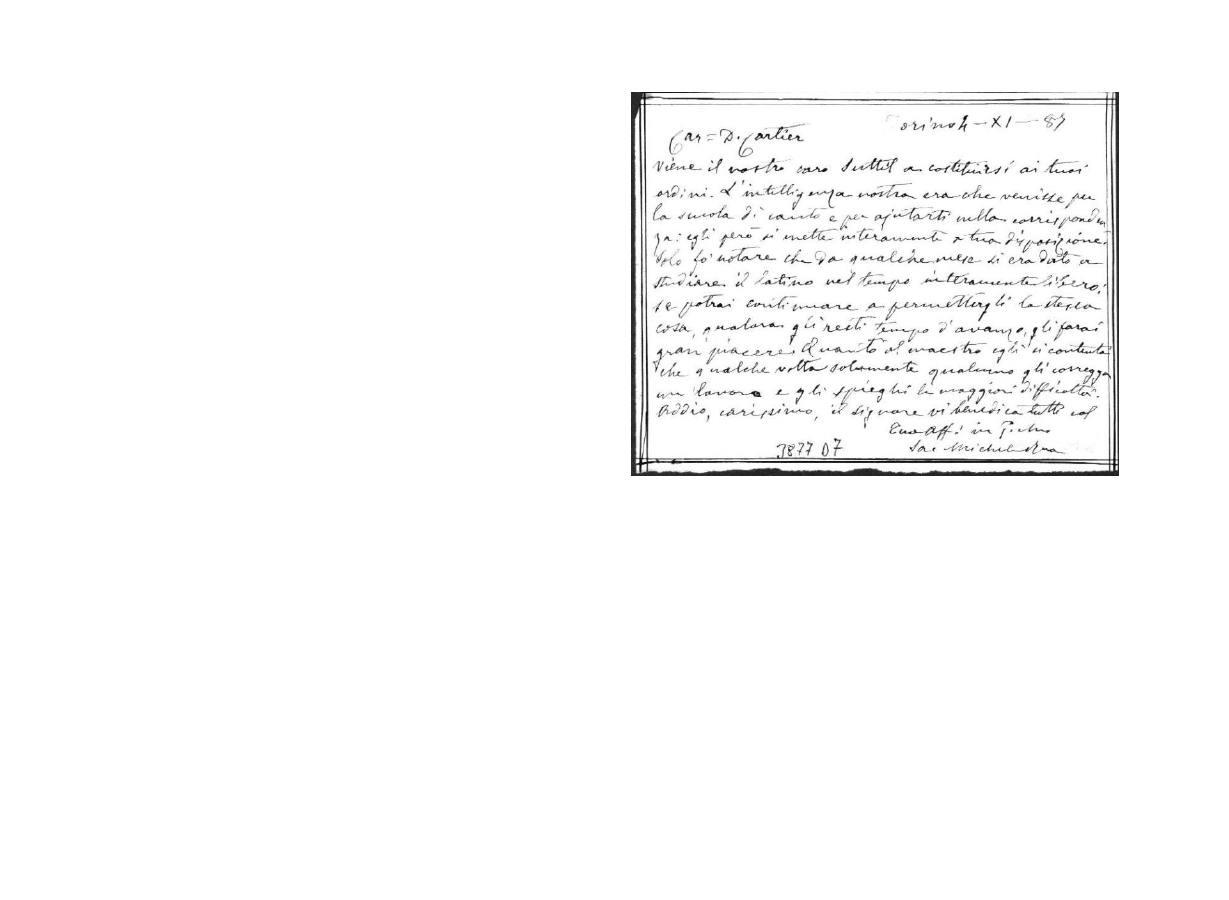 Torino 4-XI-87
Car = D. Cartier
Viene il nostro caro Suttil a costituirsi ai tuoi
ordini. L'intelligenza nostra era che venisse per
la scuola di canto e per ajutarti nella corrisponden
za: egli però si mette interamente a tua disposizione.
Solo fo notare che da qualche mese si era dato a
studiare il latino nel tempo interamente libero:
se potrai continuare a permettergli la stessa
cosa, qualora gli resti tempo d'avanzo, gli farai
gran piacere. Quanto al maestro egli si contenta
che qualche volta solamente qualcuno gli corregga
un lavoro e gli spieghi le maggiori difficoltà.
Addio, carissimo, il Signore vi benedica tutti col
Tuo Aff. in G. e M.
Sac Michele Rua
3877 D7